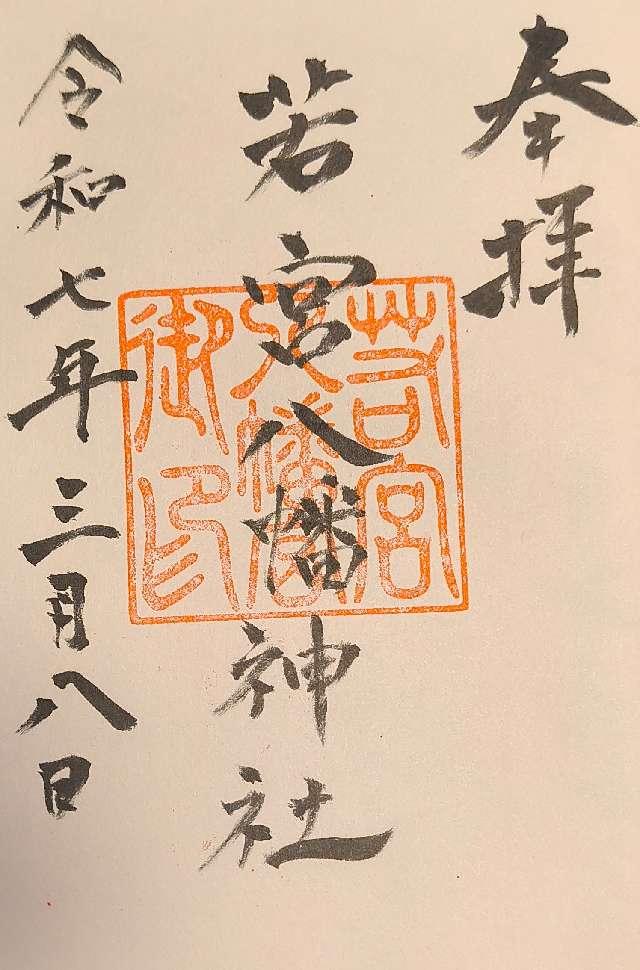 奉拝
若宮八幡神社
令和七年三月八日
若宮
八幡
御印